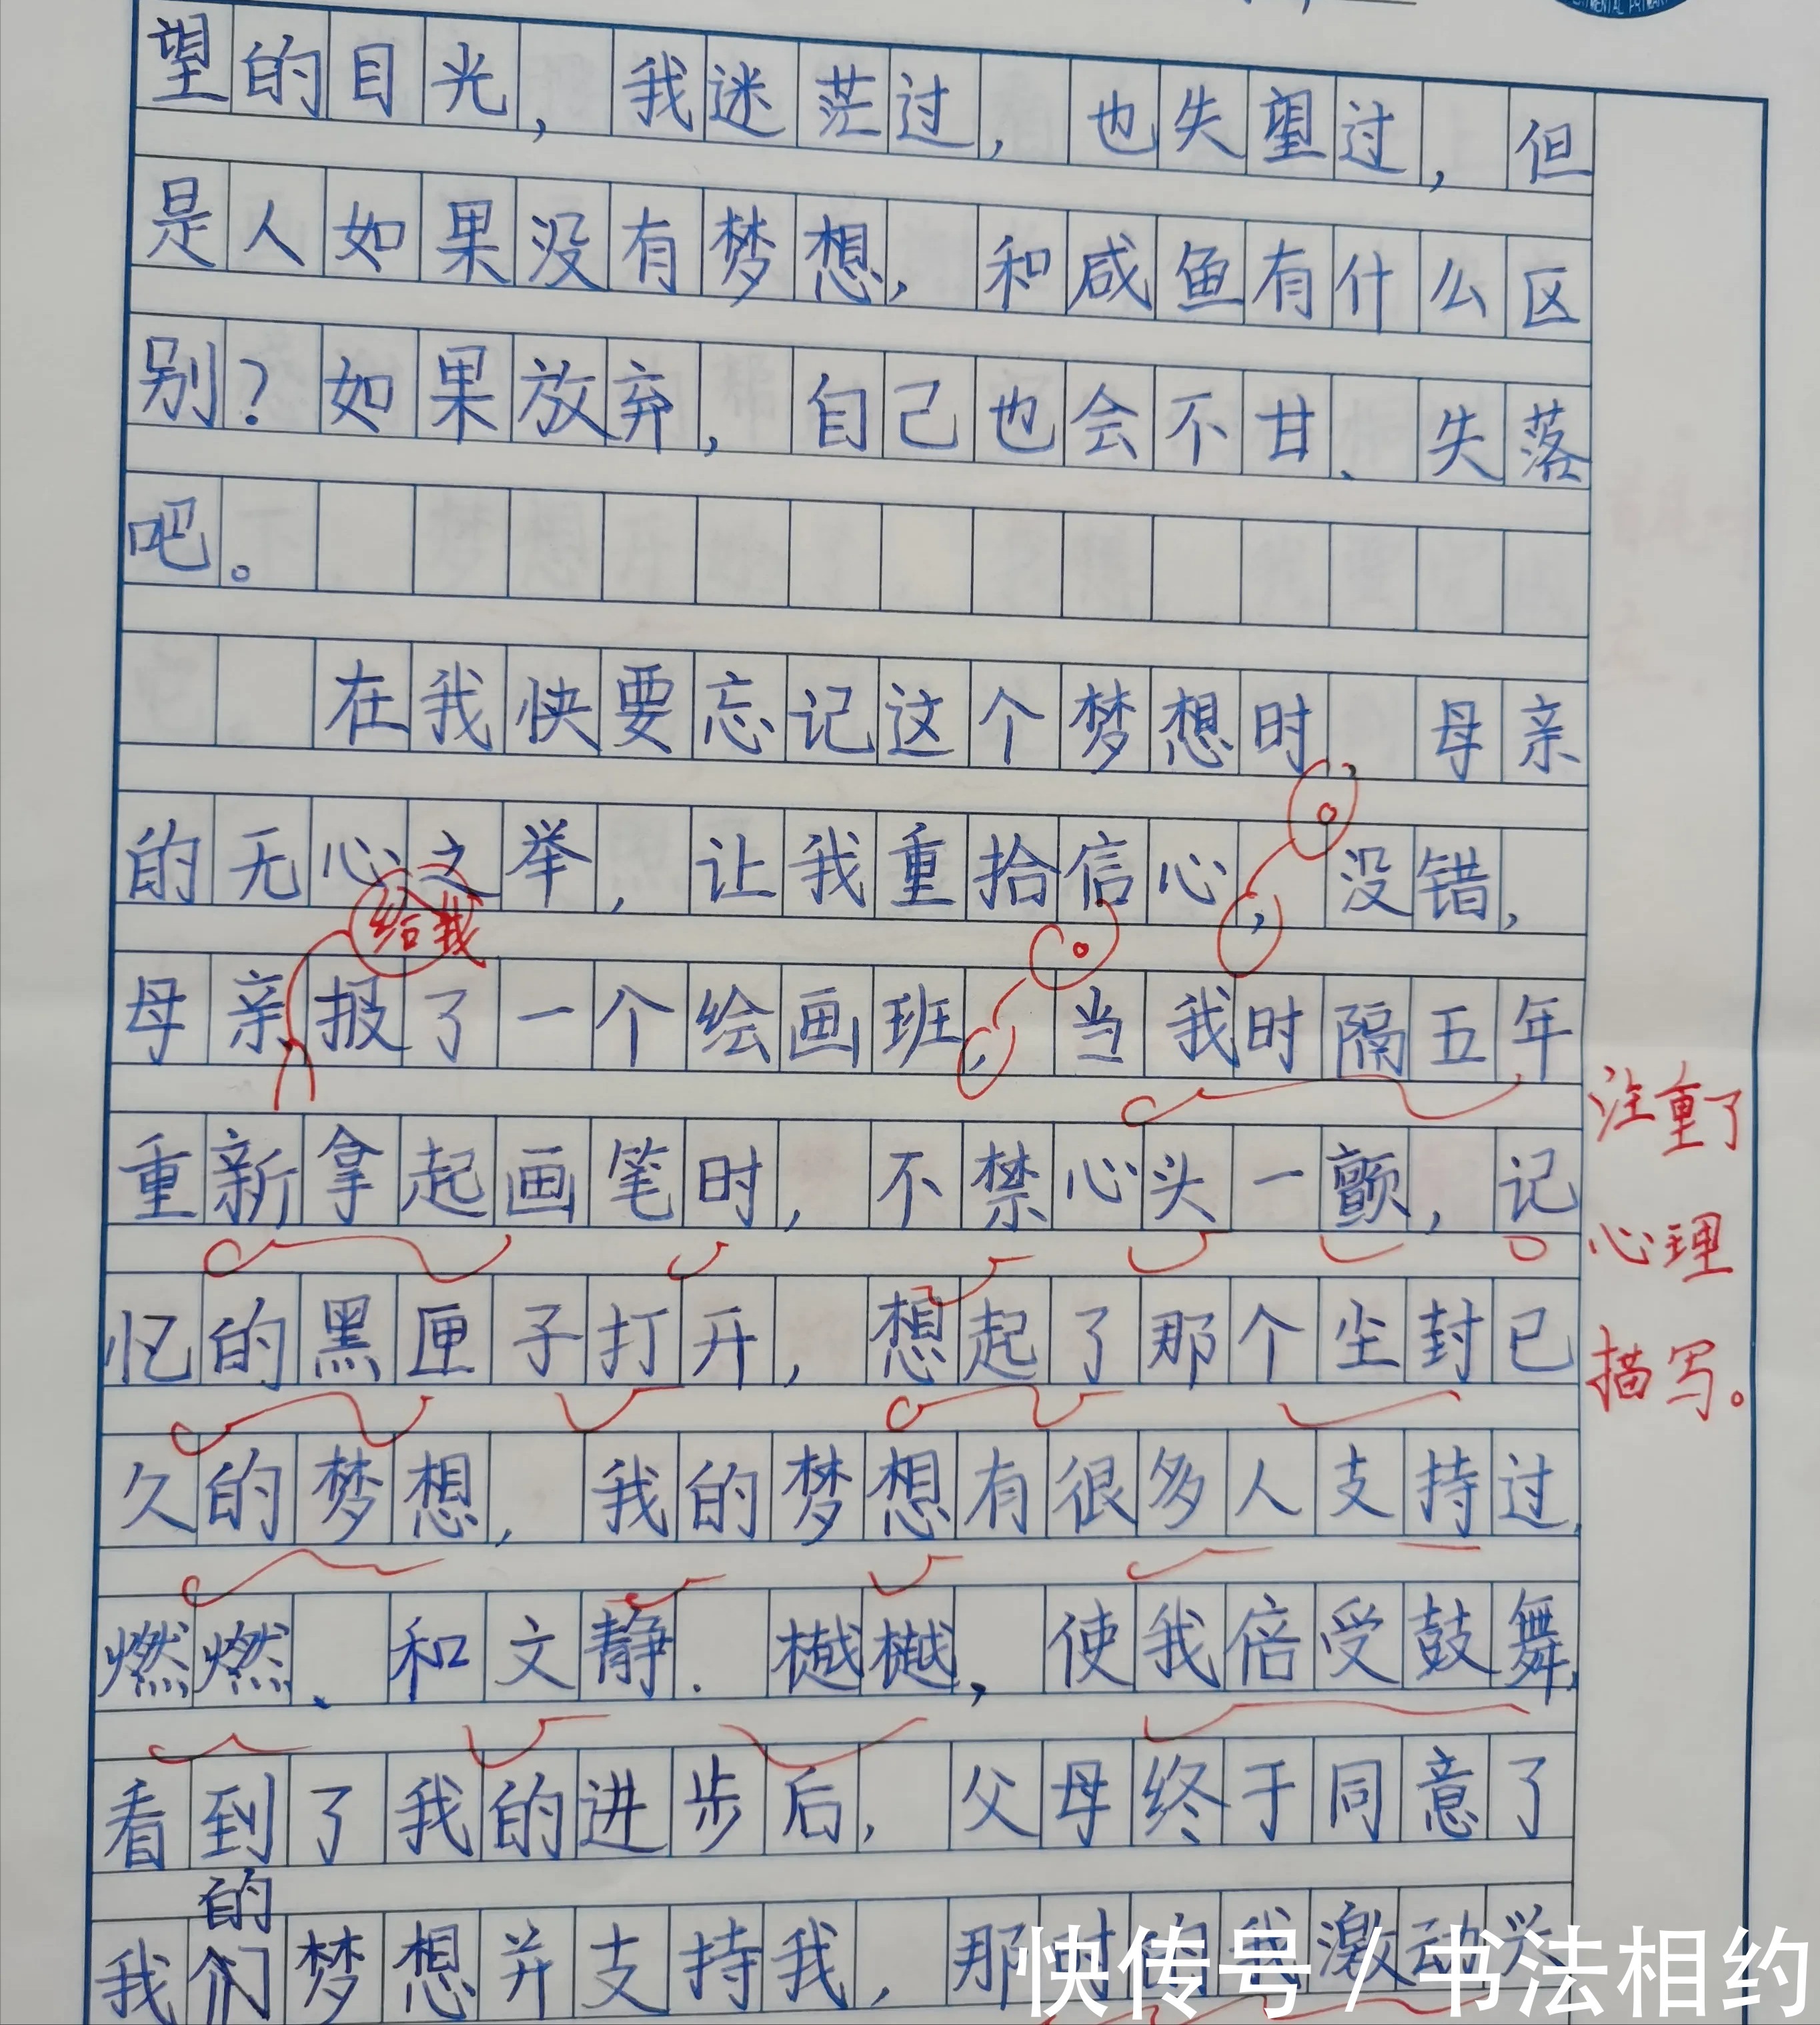 望的目光，我迷茫过，也失望过，但
是人如果没有梦想，和咸鱼有什么区
别？如果放弃，自己也会不甘、失落
吧。
在我快要忘记这个梦想时，母亲
的无心之举，让我重拾信心，没错，
给我
母亲报了一个绘画班，当我时隔五年
重新拿起画笔时，不禁心头一颤，记
忆的黑匣子打开，想起了那个尘封已
久的梦想，我的梦想有很多人支持过，
燃燃、和文静.樾樾，使我倍受鼓舞，
看到了我的进步后，父母终于同意了
的
我梦想并支持我，那时的我激动兴
注重了
心理
描写。
快传号/书法相约